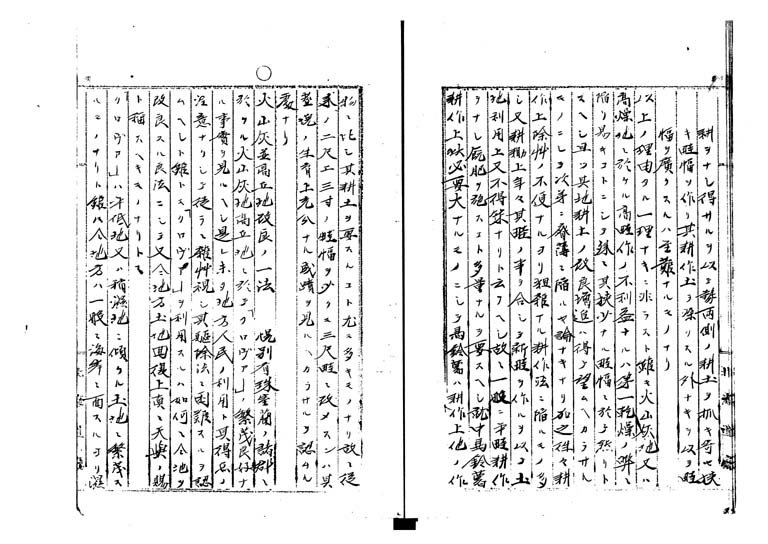 耕ヲナシ得サルヲ以テ勢両側ノ耕土ヲ抓キ寄セ狭
キ畦幅ヲ作リ其耕作土ヲ深リスル外ナキヲ以テ畦
幅ヲ廣クスルハ至難ナルモノナリ
以上ノ理由ヲル一理ナキニ非ラスト雖モ火山灰地又ハ
高燥地ニ於ケル高畦作ノ不利益ナルハ第一乾燥ノ弊ニ
陥リ易キコトニシテ殊ニ其狭少ナル畦幅ニ於テ然リト
スヘシ且ツ其地耕土ノ改良増進ハ得テ望ムヘカラサル
モノニシテ次第ニ瘠薄ニ陥ルヤ論ナキナリ加之作々耕
作上除艸ノ不便ナルヨリ粗報ナル耕作法ニ陥ルモノ多
シ又耕鋤上年々其畦ノ事ヲ合シテ新畦ヲ作ルヲ以テ土
地利用上又不得策ナリト云フヘシ故ニ一般ニ平畦耕作
ヲナシ厩肥ヲ施スコト多量ナルヲ要スヘシ就中馬鈴薯
耕作上ハ必要大ナルモノニシテ馬鈴薯ハ耕作上他ノ作
物ニ比シ其耕土ヲ要スルコト尤モ多キモノナリ故ニ従
来ノ二尺二三寸ノ畦幅ヲ少クモ三尺畦ニ改メスンハ其
莖塊ノ生育上充分ナル成蹟ヲ見ルヘカラサルヲ認ムル
處ナリ
火山灰並高丘地改良ノ一法 幌別有珠室蘭諸郡ニ
於ケル火山灰地高丘地ニ於テ「クロヴァ」ノ繁茂良好ナ
ル事實ヲ見ルヘシ是レ未タ地方人民ノ利用ト其得否ノ
注意ナリシテ徒ラニ雜艸視シ其驅除法ニ困難スルヲ認
ムヘシト雖トモ「クロヴァ」ヲ利用スルハ如何ニモ仝地ヲ
改良スル良法ニシテ又仝地方土地回復上真ニ天與ノ賜
ト稱スヘキモノナリトス
「クロヴァ」ハ平低地又ハ稍濕地ニ傾ケル土地ニ繁茂ス
ルモノナリト雖ハ仝地方ハ一般ニ海岸ニ面スルヨリ濕